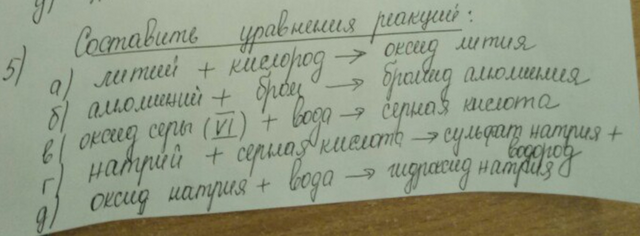 5) Составить уравнения реакций:
а) литий + кислород → оксид лития
б) алюминий + бром → бромид алюминия
в) оксид серы (VI) + вода → серная кислота
г) натрий + серная кислота → сульфат натрия + водород
д) оксид натрия + вода → гидроксид натрия